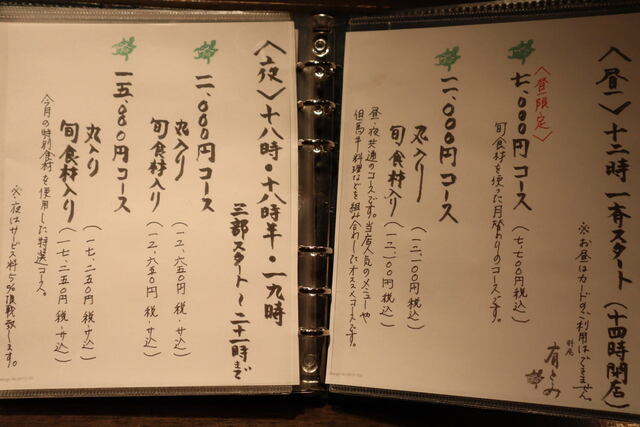 〈昼〉十二時一斉スタート（十四時閉店）
※お昼はカードのご利用はできません。
〈昼限定〉
七、〇〇〇円コース（七、七〇〇円税込）
旬食材を使った月替わりのコースです。
一一、〇〇〇円コース
丸入り（一二、一〇〇円税込）
旬食材入り（一二、一〇〇円税込）
昼・夜共通のコースです。当店人気のメニューや
但馬牛料理などを組み合わせたオススメコースです。
〈夜〉十八時・十八時半・一九時
三部スタート～二十一時まで
一一、〇〇〇円コース
丸入り（一二、六五〇円 税・サ込）
旬食材入り（一二、六五〇円 税・サ込）
一五、〇〇〇円コース
丸入り（一七、二五〇円 税・サ込）
旬食材入り（一七、二五〇円 税・サ込）
今月の特別食材を使用した特選コース。
※夜はサービス料5%頂戴致します。